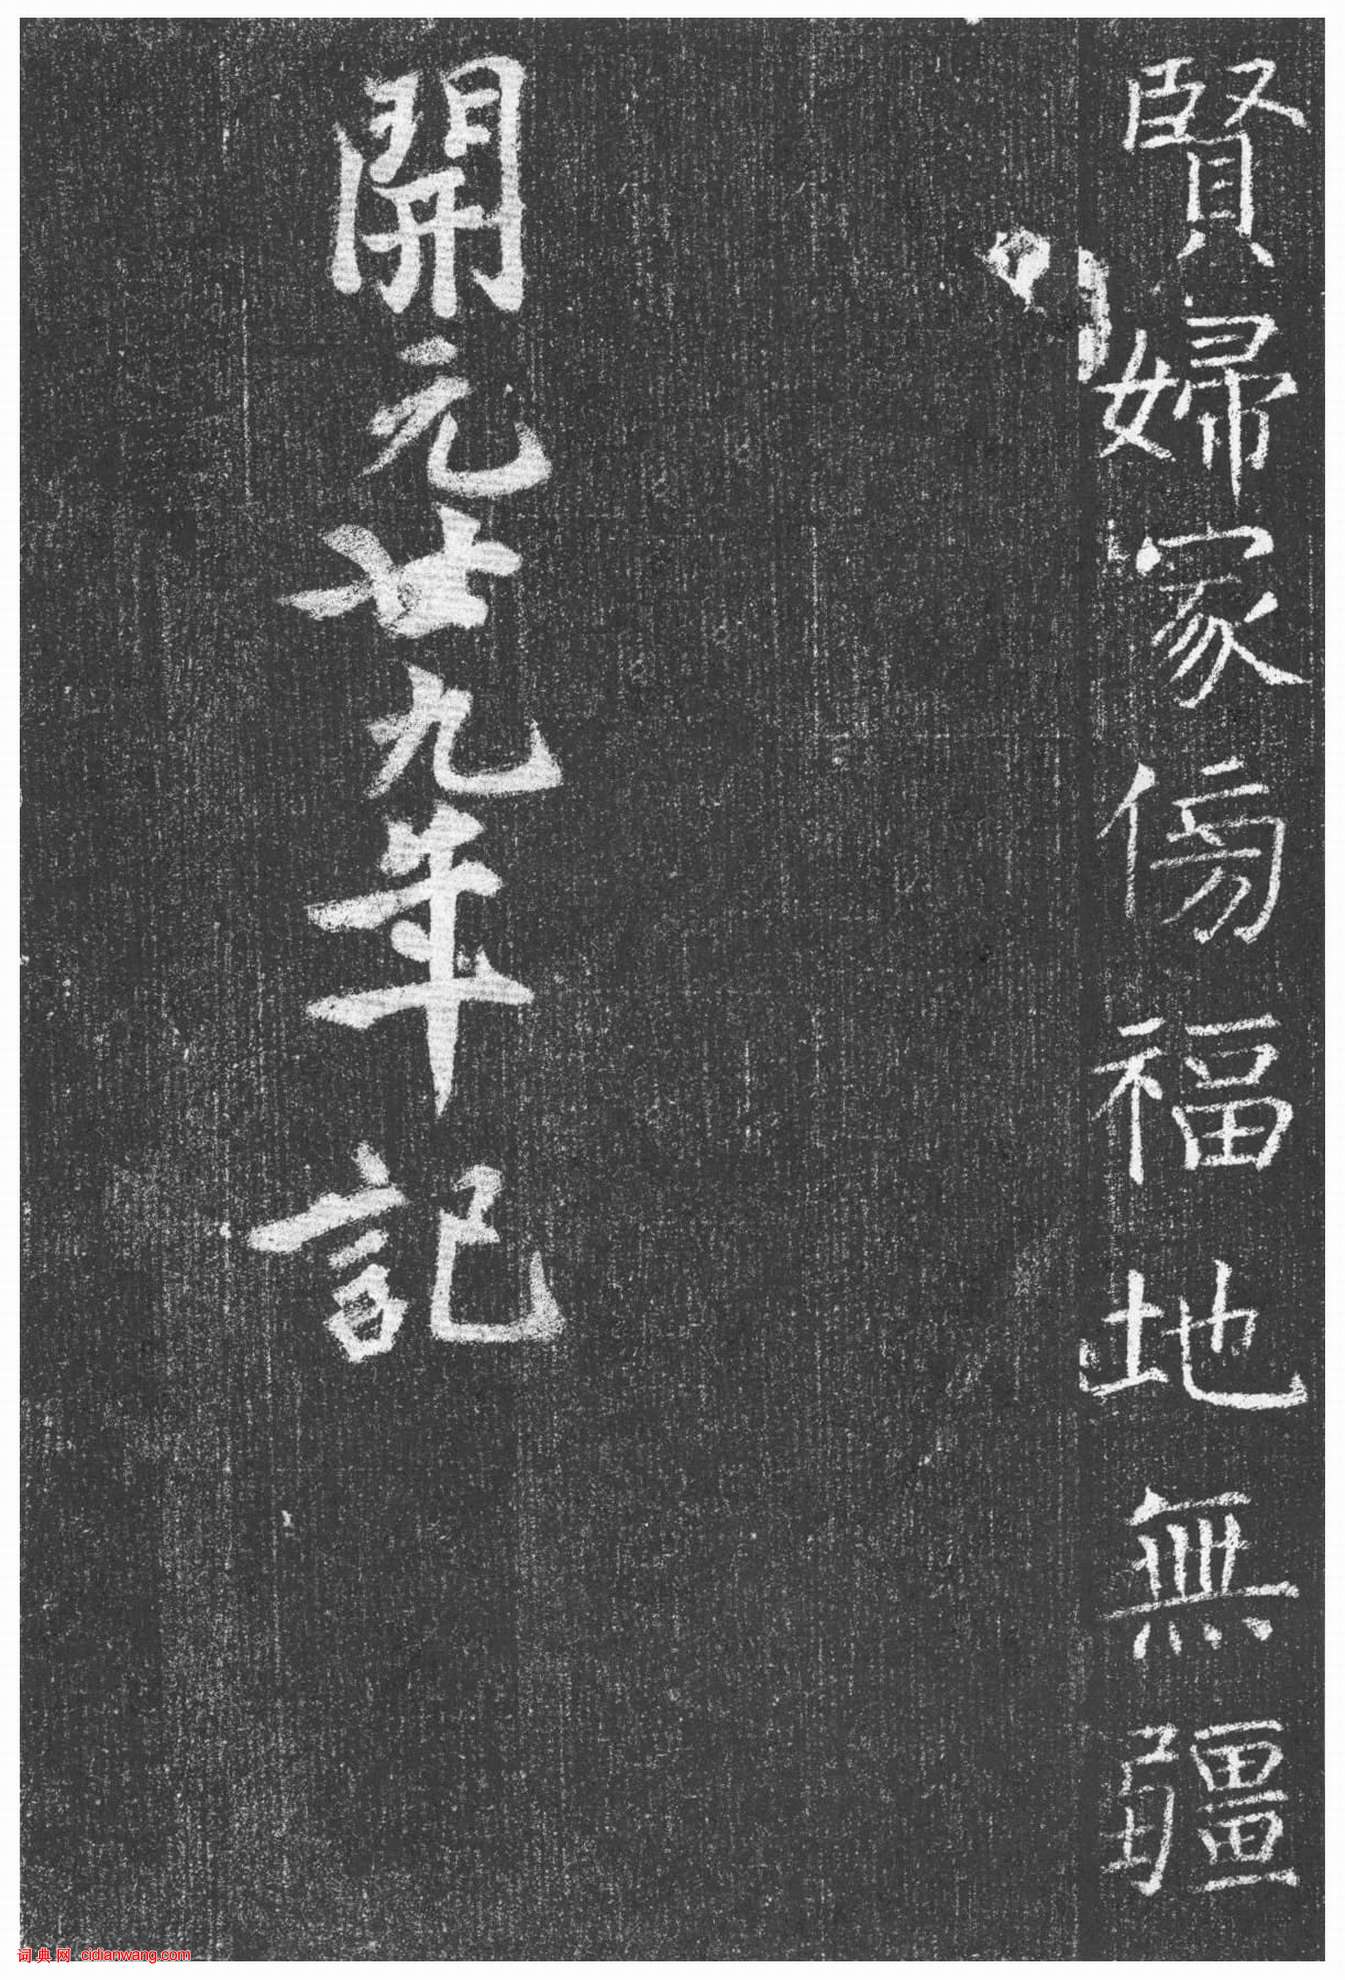 賢婦家傍福地無疆
開元廿九年記
词典网 cidianwang.com